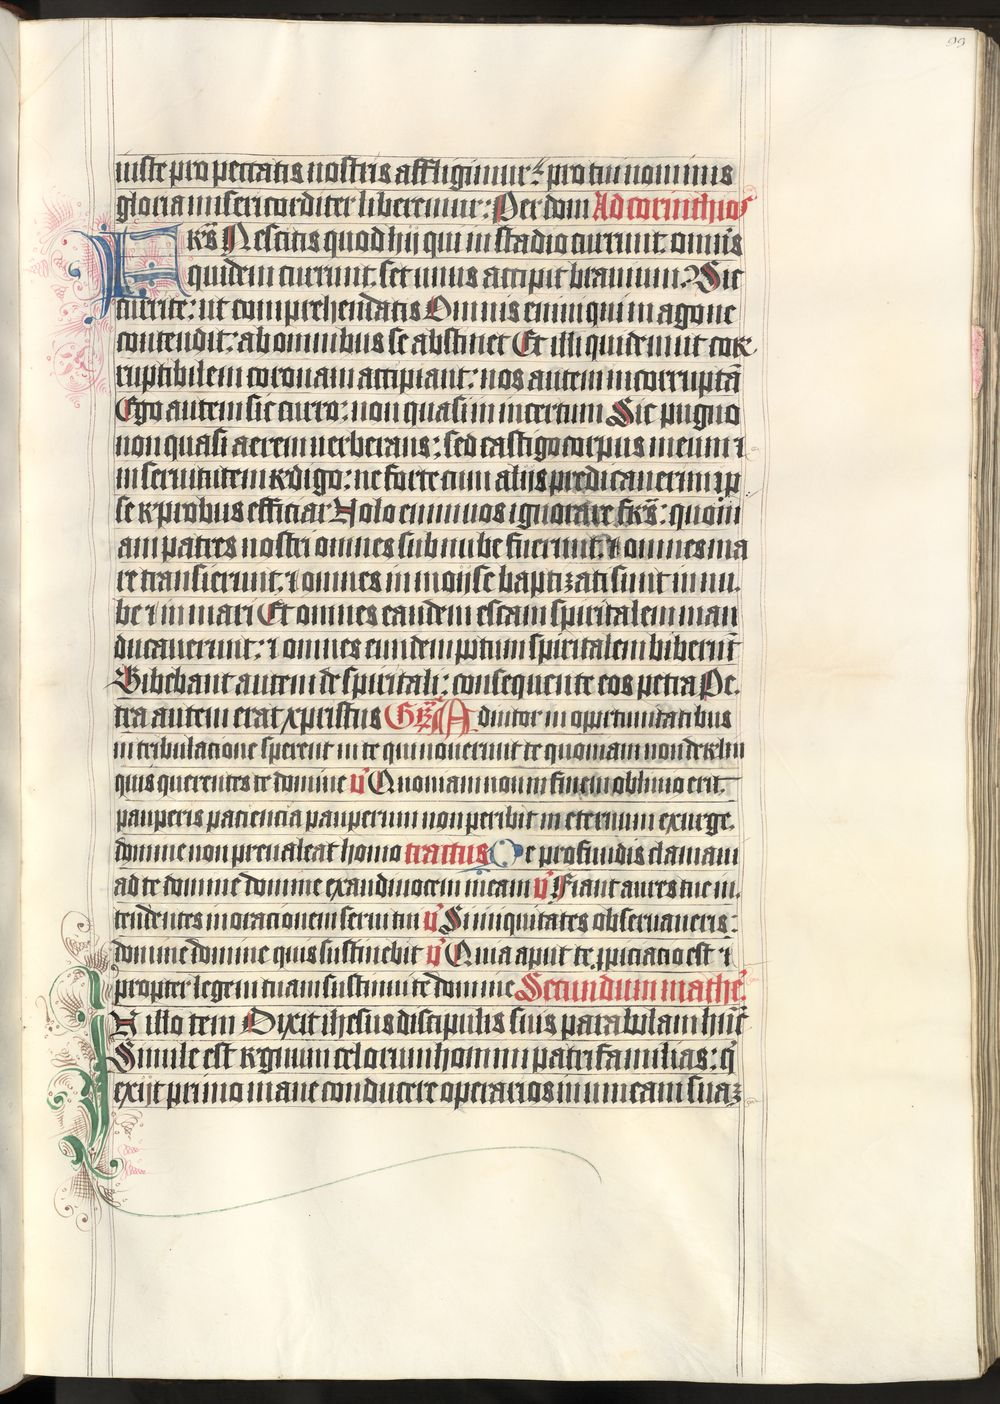 99
iuste pro peccatis nostris affligimur: pro tui nominis
gloria misericorditer liberemur: Per dom Ad corinthios
Frēs Nescitis quod hii qui in stadio currunt omnes
quidem currunt. set unus accipit bravium? Sic
currite: ut comprehendatis Omnis enim qui in agone
contendit: ab omnibus se abstinet Et illi quidem ut cor
ruptibilem coronam accipiant: nos autem incorruptā
Ego autem sic curro: non quasi in incertum Sic pugno
non quasi aerem verberans: sed castigo corpus meum ⁊
in servitutem redigo: ne forte cum aliis predicaverim ip
se reprobus efficiar Nolo enim vos ignorare frēs: quoni
am patres nostri omnes sub nube fuerunt. ⁊ omnes ma
re transierunt. ⁊ omnes in moyse baptizati sunt in nu.
be ⁊ in mari Et omnes eandem escam spiritalem man
ducaverunt: ⁊ omnes eundem potum spiritalem biberūt
Bibebant autem de spiritali: consequente eos petra Pe.
tra autem erat xpristus Gr̄ Adiutor in oportunitatibus
in tribulatione sperent in te qui noverunt te quoniam non derelin
quis querentes te domine v̄ Quoniam non in finem oblivio erit.
pauperis paciencia pauperum non peribit in eternum exurge.
domine non prevaleat homo tractus De profundis clamavi
ad te domine domine exaudi vocem meam v̄ Fiant aures tue in.
tendentes in orationem servi tui v̄ Si iniquitates observaveris:
domine domine quis sustinebit v̄ Quia aput te ꝓpiciacio est ⁊
propter legem tuam sustinui te domine Secundum mathe'
In illo tem Dixit ihesus discipulis suis parabilam hanc
Simile est regnum celorum homini patrifamilias: q̄
exijt primo mane conducere operarios in vineam suaʒ